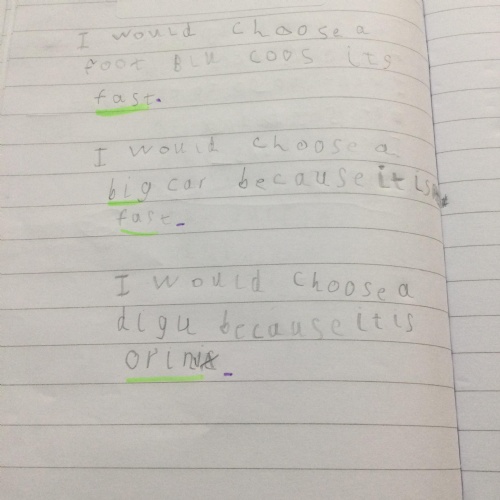 I would choose a
foot blu coos its
fast.
I would choose a
big car because it is
fast.
I would choose a
digu because it is